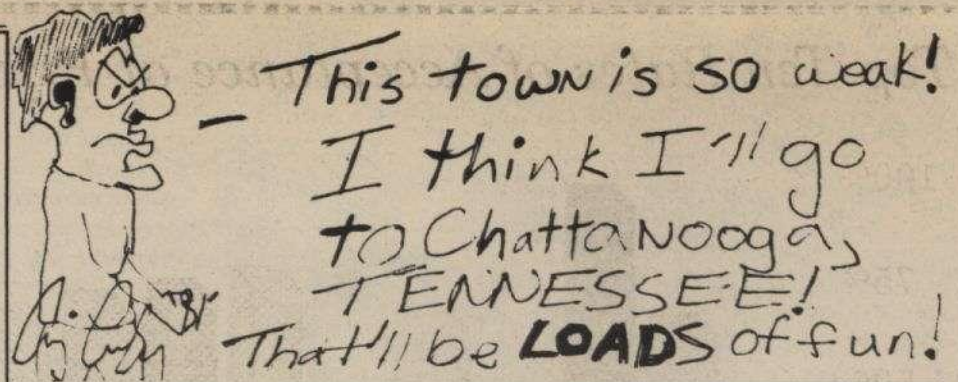 This town is so weak!
I think I'll go
to Chattanooga,
TENNESSEE!
That'll be LOADS of fun!